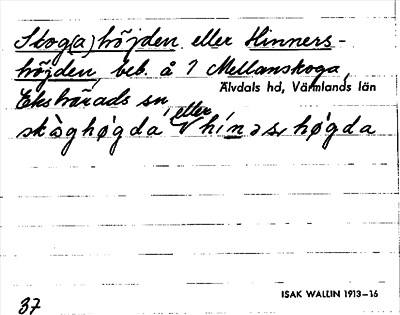 Skog(a)höjden eller Hinners-
höjden, beb. å 1 Mellanskoga,
Ekshärads sn,
Älvdals hd, Värmlands län
skòghøgda eller hínəsₒhøgda
ISAK WALLIN 1913–16
37